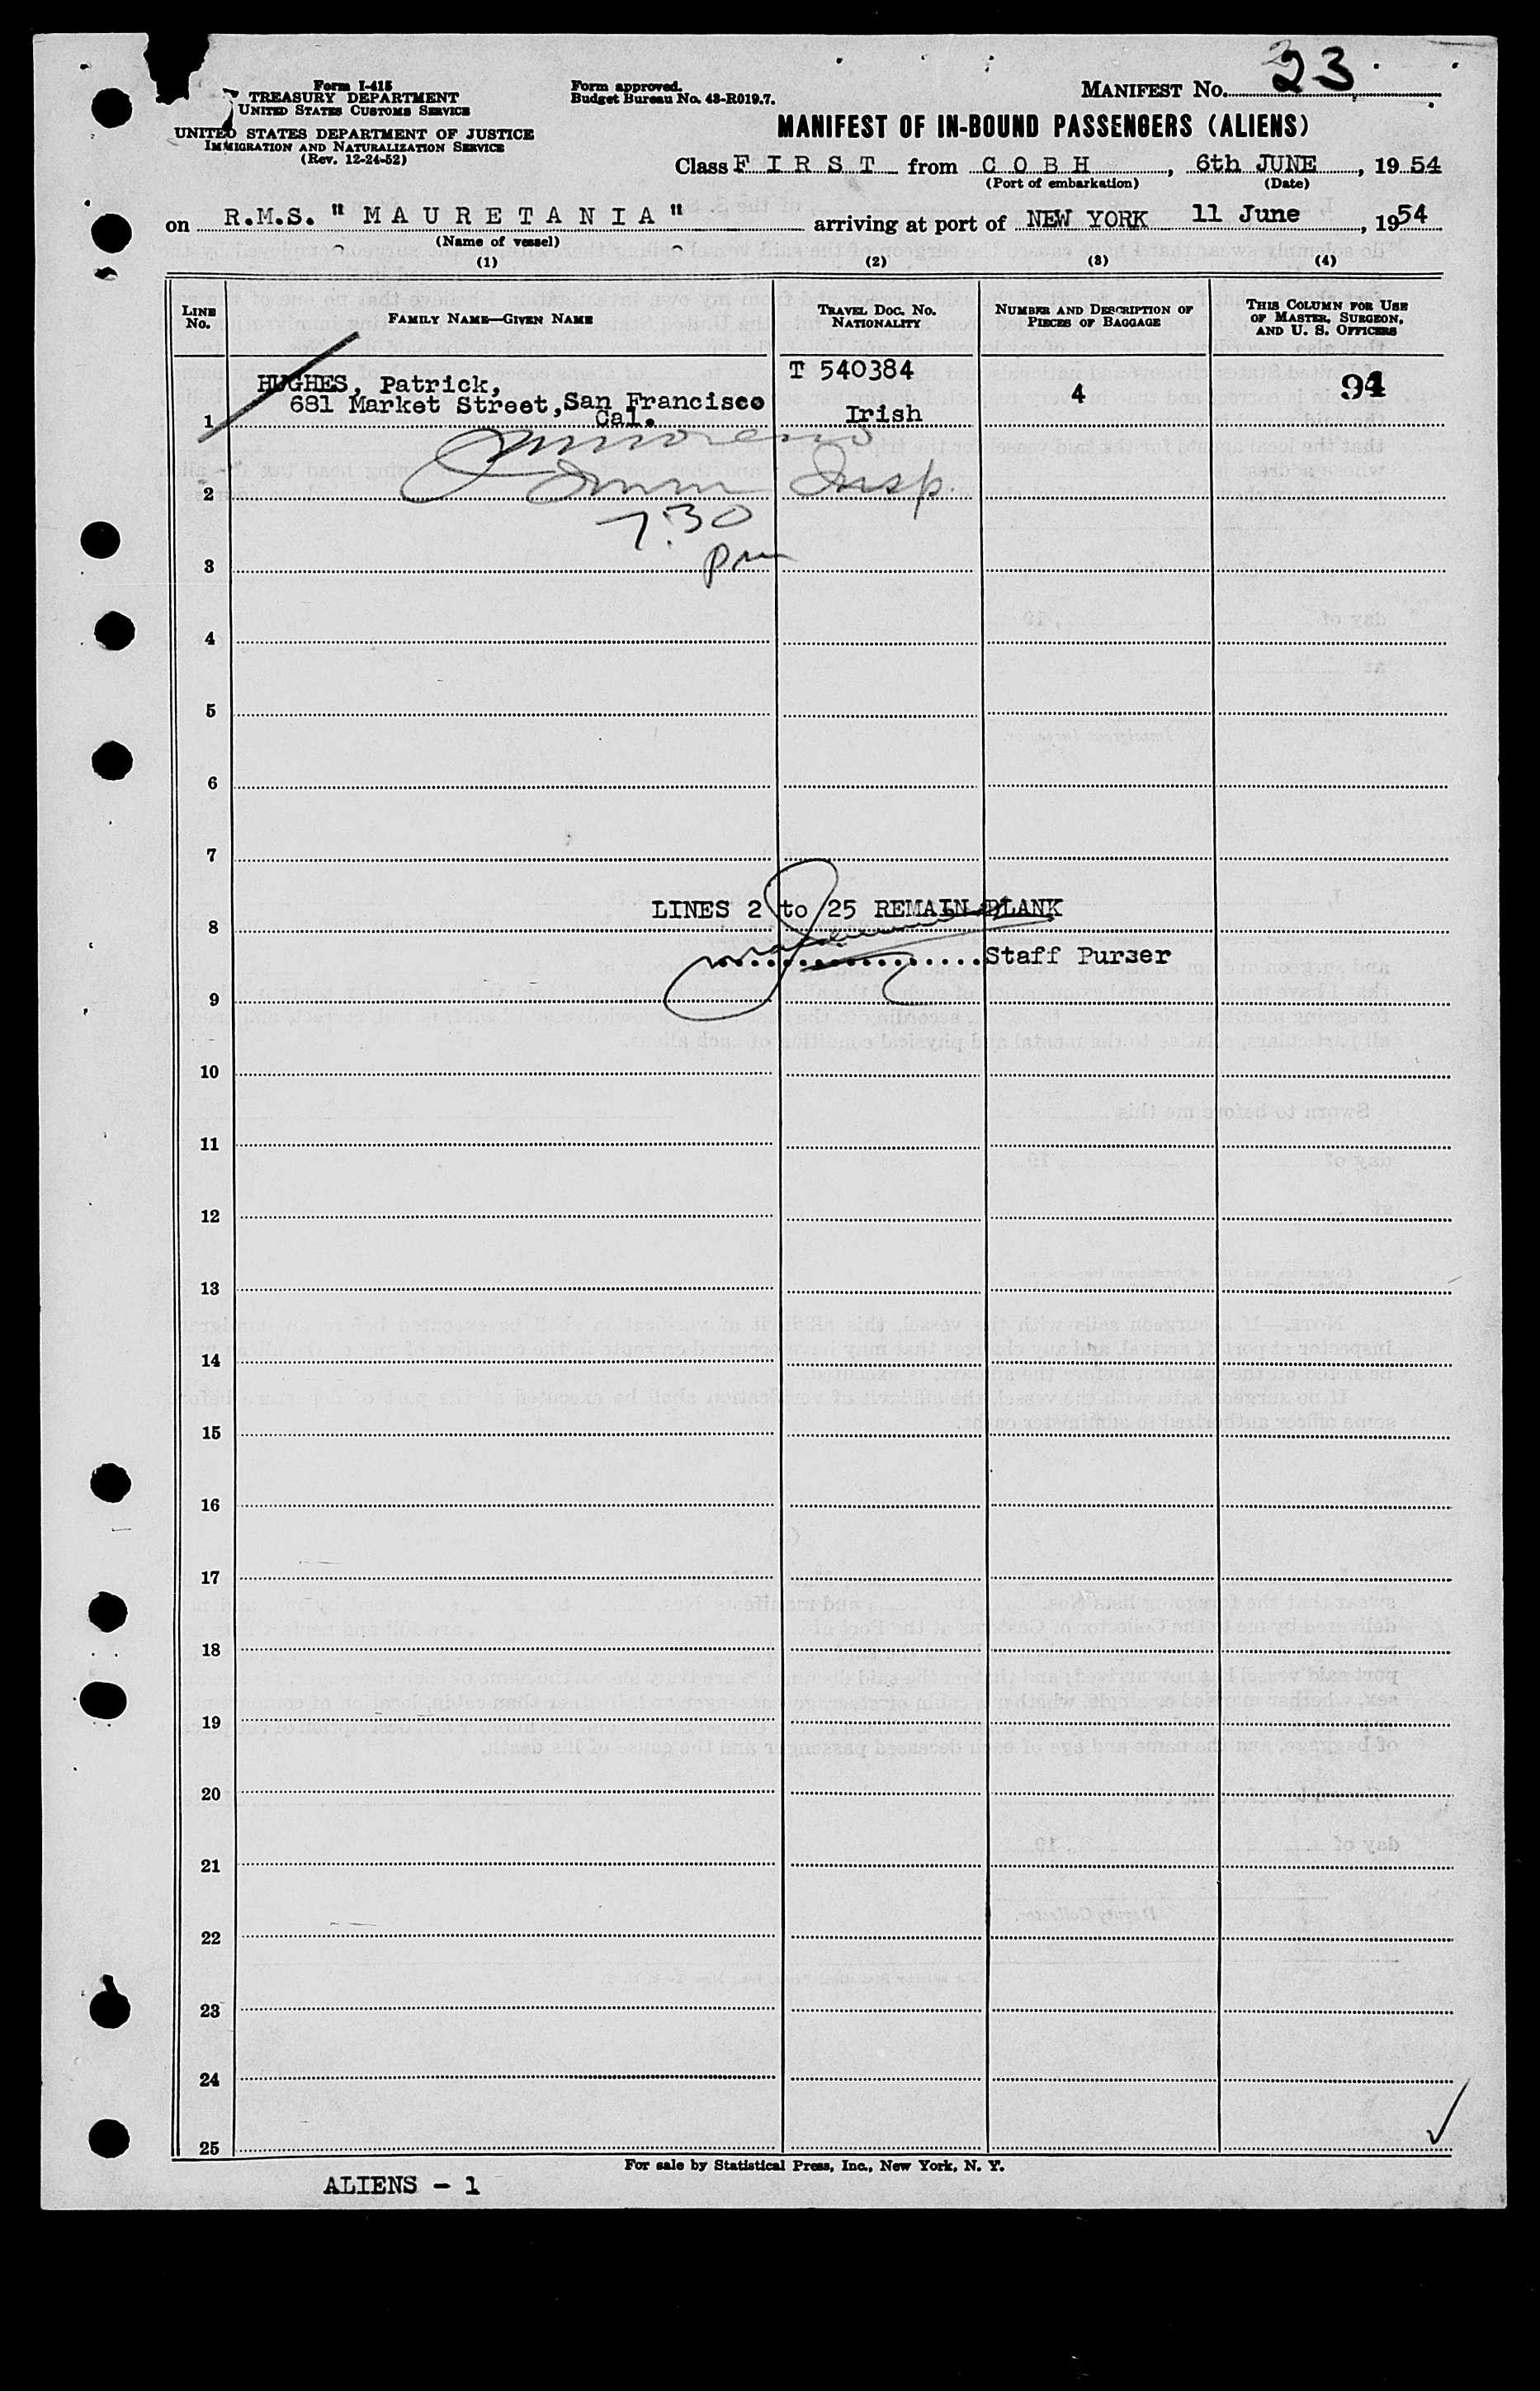 Form I-415
TREASURY DEPARTMENT
UNITED STATES CUSTOMS SERVICE
UNITED STATES DEPARTMENT OF JUSTICE
IMMIGRATION AND NATURALIZATION SERVICE
(Rev. 12-24-52)
Form approved.
Budget Bureau No. 43-R019.7.
MANIFEST No. 23
MANIFEST OF IN-BOUND PASSENGERS (ALIENS)
Class F I R S T from C O B H, 6th JUNE, 19 54
(Port of embarkation) (Date)
on R.M.S. " M A U R E T A N I A " arriving at port of NEW YORK 11 June, 1954
(Name of vessel)
(1) (2) (3) (4)
LINE No. FAMILY NAME—GIVEN NAME TRAVEL DOC. NO. NATIONALITY NUMBER AND DESCRIPTION OF PIECES OF BAGGAGE THIS COLUMN FOR USE OF MASTER, SURGEON, AND U. S. OFFICERS
HUGHES, Patrick, T 540384 4 94
681 Market Street, San Francisco
1 Cal. Irish
2 Imm Insp.
7:30
3 pm
4
5
6
7
LINES 2 to 25 REMAIN BLANK
8
Staff Purser
9
10
11
12
13
14
15
16
17
18
19
20
21
22
23
24
25
For sale by Statistical Press, Inc., New York, N. Y.
ALIENS - 1